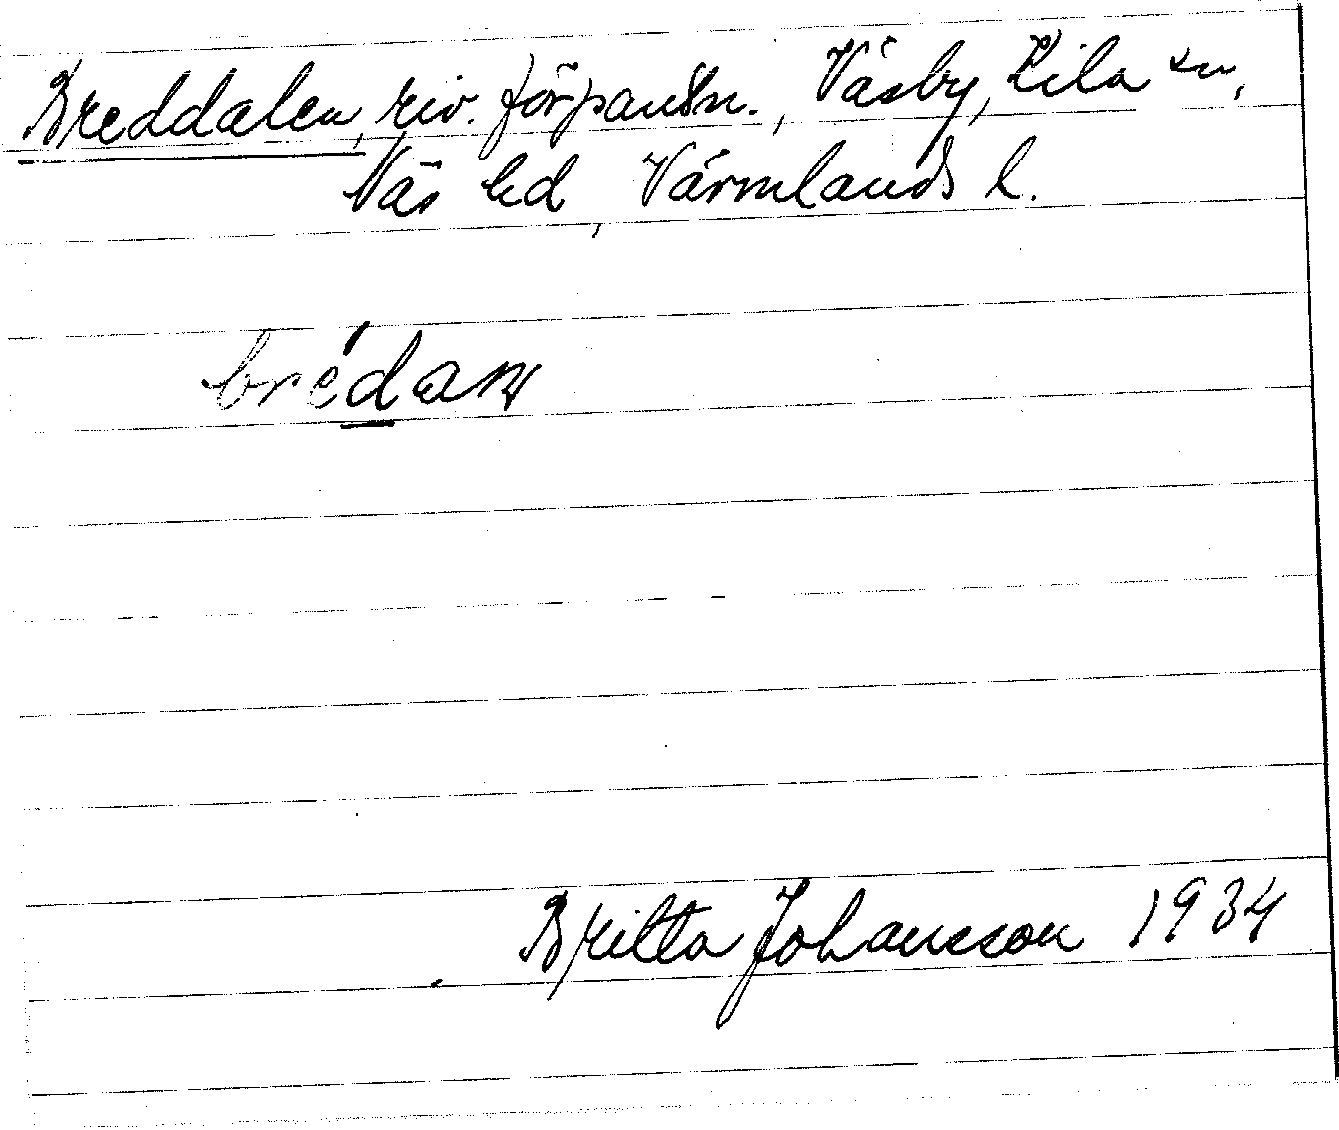 Breddalen, riv. förpantn., Väsby, Kila sn,
Näs hd, Värmlands l.
brédaṉ
Britta Johansson 1934